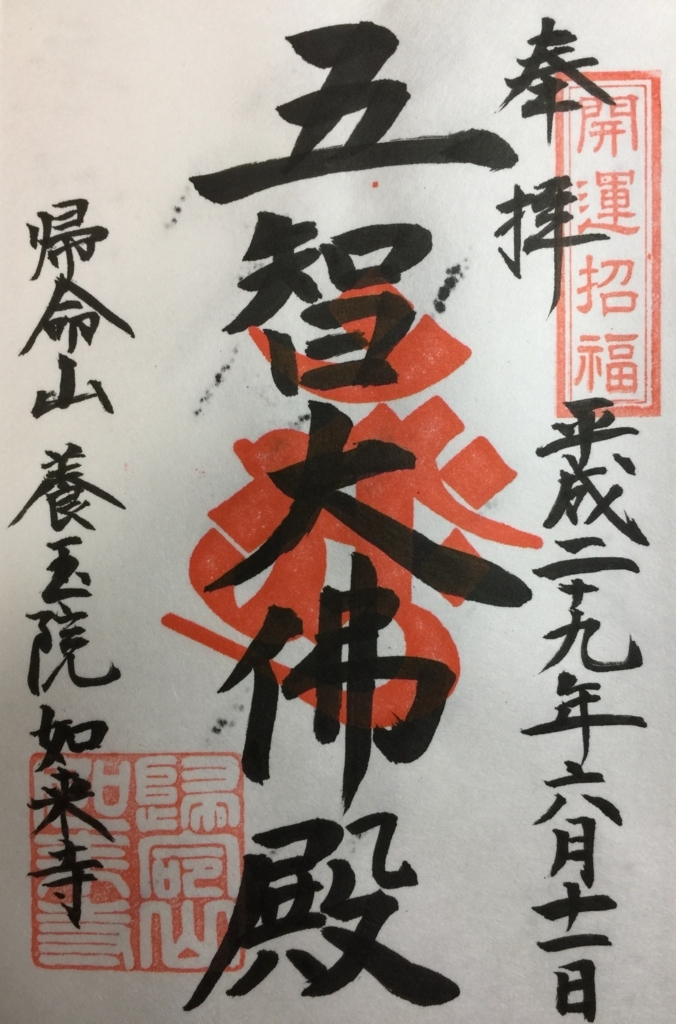 開運招福
奉拝
平成二十九年六月十一日
五智大佛殿
帰命山 養玉院 如来寺